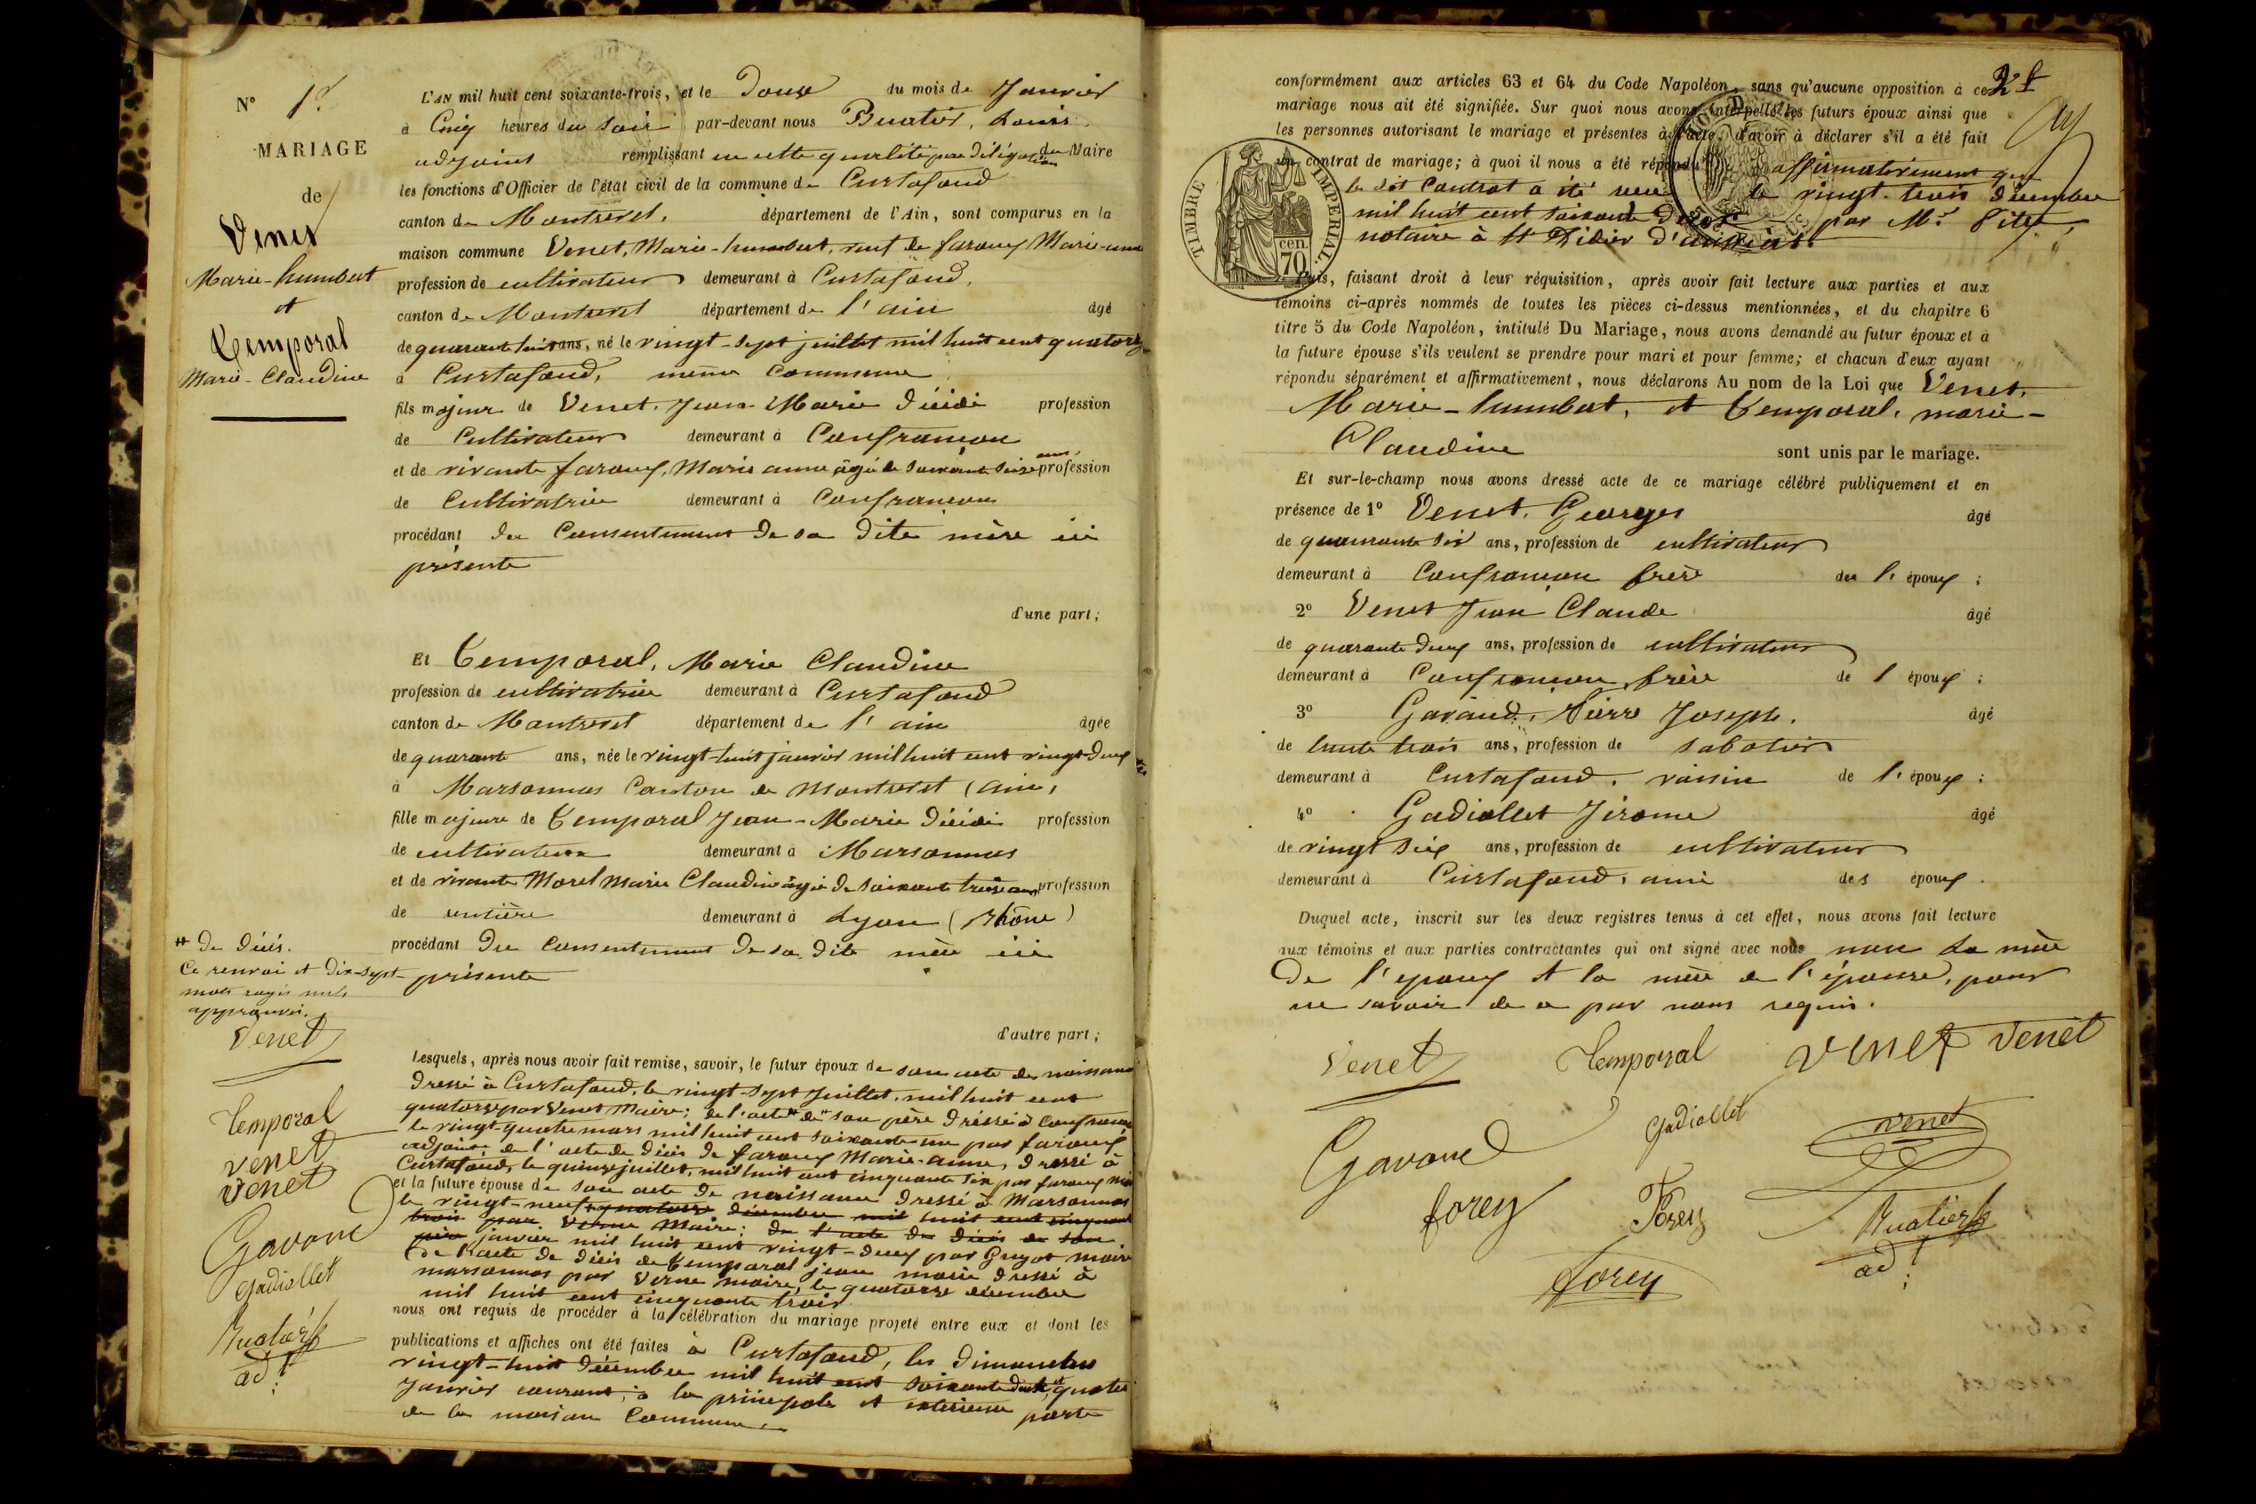 N° 1er
MARIAGE
de
Venet
Marie-humbert
et
Temporal
Marie-Claudine
L'AN mil huit cent soixante-trois, et le Douze du mois de Janvier
à Cinq heures du soir par-devant nous Buatier, Louis
adjoint remplissant en cette qualité par délégation du Maire
les fonctions d'Officier de l'état civil de la commune de Curtafond
canton de Montrevel, département de l'Ain, sont comparus en la
maison commune Venet, Marie-humbert, veuf de faroux Marie-anne
profession de cultivateur demeurant à Curtafond,
canton de Montrevel département de l'ain âgé
de quarante huit ans, né le vingt-sept juillet mil huit cent quatorze
à Curtafond, même commune
fils majeur de Venet, Jean-Marie décédé profession
de Cultivateur demeurant à Confrançon
et de vivante faroux, Marie anne âgée de soixante seize ans, profession
de Cultivatrice demeurant à Confrançon
procédant du Consentement de sa dite mère ici
présente
d'une part;
Et Temporal, Marie Claudine
profession de cultivatrice demeurant à Curtafond
canton de Montrevel département de l'ain âgée
de quarante ans, née le vingt-huit janvier mil huit cent vingt-deux
à Marsonnas Canton de Montrevel (ain,
fille majeure de Temporal Jean-Marie décédé profession
de cultivateur demeurant à Marsonnas
et de vivante Morel Marie Claudine âgée de soixante treize ans profession
de rentière demeurant à Lyon (Rhône)
procédant du consentement de sa dite mère ici
présente
d'autre part;
# de décès.
Ce renvoi et dix-sept
mots rayés nuls
approuvés.
Venet
Temporal
venet
Venet
Gavand
Gadiollet
Buatier L
adt
Lesquels, après nous avoir fait remise, savoir, le futur époux de son acte de naissance
Dressé à Curtafond, le vingt-sept Juillet, mil huit cent
quatorze par Venet Maire; de l'acte # de son père Dressé à Confrançon
le vingt quatre mars mil huit cent soixante un par faroux
adjoint; de l'acte de décès de faroux Marie-anne, dressé à
Curtafond, le quinze juillet, mil huit cent cinquante six par faroux
et la future épouse de son acte de naissance dressé à Marsonnas
le vingt-neuf quatorze décembre mil huit cent cinquante
trois par Verne Maire; de l'acte de décès de son
père janvier mil huit cent vingt-deux par Guyot maire
de l'acte de décès de Temporal jean marie dressé à
marsonnas par Verne maire, le quatorze décembre
mil huit cent cinquante trois
nous ont requis de procéder à la célébration du mariage projeté entre eux et dont les
publications et affiches ont été faites à Curtafond, les dimanches
vingt-huit décembre mil huit cent soixante deux, et quatre
Janvier courant, à la principale et extérieure porte
de la maison Commune.
conformément aux articles 63 et 64 du Code Napoléon, sans qu'aucune opposition à ce
mariage nous ait été signifiée. Sur quoi nous avons interpellé les futurs époux ainsi que
les personnes autorisant le mariage et présentes à l'acte, d'avoir à déclarer s'il a été fait
un contrat de mariage; à quoi il nous a été répondu affirmativement que
le dit Contrat a été reçu le vingt-trois décembre
mil huit cent soixante deux par Me
notaire à St Didier d'aussiat.
TIMBRE IMPERIAL
70 cen.
Puis, faisant droit à leur réquisition, après avoir fait lecture aux parties et aux
témoins ci-après nommés de toutes les pièces ci-dessus mentionnées, et du chapitre 6
titre 5 du Code Napoléon, intitulé Du Mariage, nous avons demandé au futur époux et à
la future épouse s'ils veulent se prendre pour mari et pour femme; et chacun d'eux ayant
répondu séparément et affirmativement, nous déclarons Au nom de la Loi que Venet,
Marie-humbert, et Temporal, marie-
Claudine sont unis par le mariage.
Et sur-le-champ nous avons dressé acte de ce mariage célébré publiquement et en
présence de 1° Venet, Georges âgé
de quarante six ans, profession de cultivateur
demeurant à Confrançon frère de l'époux;
2° Venet Jean Claude âgé
de quarante deux ans, profession de cultivateur
demeurant à Confrançon, frère de l'époux;
3° Gavand, Pierre Joseph, âgé
de trente trois ans, profession de sabotier
demeurant à Curtafond, voisin de l'époux;
4° Gadiollet Jérome âgé
de vingt six ans, profession de cultivateur
demeurant à Curtafond, ami des époux.
Duquel acte, inscrit sur les deux registres tenus à cet effet, nous avons fait lecture
aux témoins et aux parties contractantes qui ont signé avec nous non la mère
De l'époux et la mère de l'épouse, pour
ne savoir de ce par nous requis.
Venet Temporal Venet Venet
Gavand Gadiollet venet
forey Forey Buatier L
adt
forey